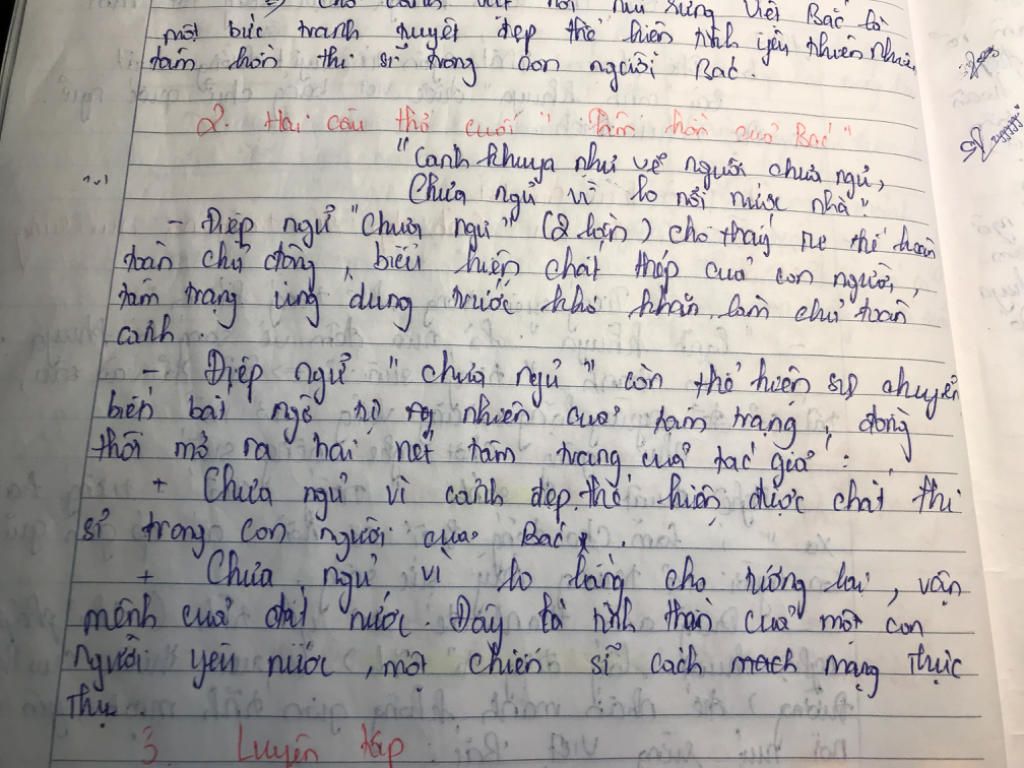 cho cảnh vật nơi núi rừng Việt Bắc là
một bức tranh tuyệt đẹp thể hiện tình yêu thiên nhiên,
tâm hồn thi sĩ trong con người Bác.
2. Hai câu thơ cuối "Tâm hồn của Bác"
"Cảnh khuya như vẽ người chưa ngủ,
Chưa ngủ vì lo nỗi nước nhà".
- Điệp ngữ "Chưa ngủ" (2 lần) cho thấy tư thế hoàn
toàn chủ động, biểu hiện chất thép của con người,
tâm trạng ung dung trước khó khăn, làm chủ toàn
cảnh.
- Điệp ngữ "chưa ngủ" còn thể hiện sự chuyển
biến bất ngờ tự nhiên của tâm trạng, đồng
thời mở ra hai nét tâm trạng của tác giả:
+ Chưa ngủ vì cảnh đẹp thể hiện được chất thi
sĩ trong con người của Bác.
+ Chưa ngủ vì lo lắng cho tương lai, vận
mệnh của đất nước. Đây là tinh thần của một con
người yêu nước, một chiến sĩ cách mạng thực
thụ
3. Luyện tập